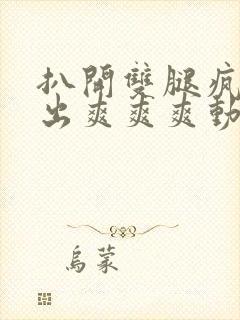 扒開雙腿瘋
出爽爽爽動
烏蒙